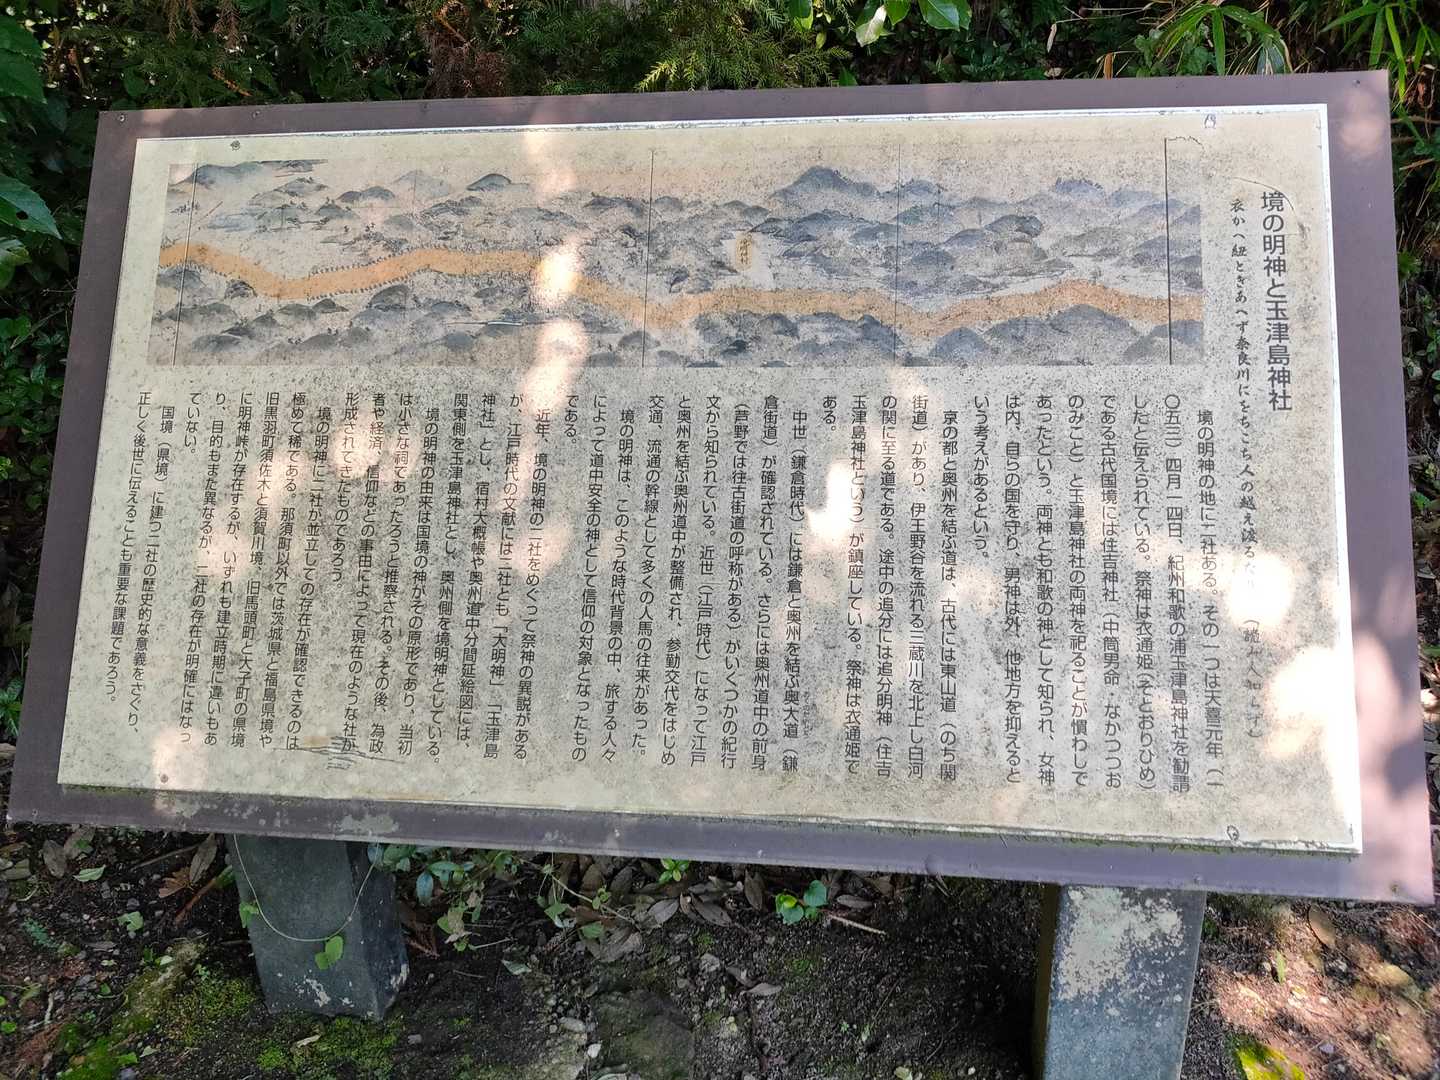 境の明神と玉津島神社
衣かへ紐ときあへず奈良川にをちこち人の越え渡るなり (読み人知らず)
境の明神の地に二社ある。その一つは天喜元年(一
〇五三)四月一四日、紀州和歌の浦玉津島神社を勧請
したと伝えられている。祭神は衣通姫(そとおりひめ)
である古代国境には住吉神社(中筒男命 なかつつお
のみこと)と玉津島神社の両神を祀ることが慣わしで
あったという。両神とも和歌の神として知られ、女神
は内、自らの国を守り、男神は外、他地方を抑えると
いう考えがあるという。
京の都と奥州を結ぶ道は、古代には東山道(のち関
街道)があり、伊王野谷を流れる三蔵川を北上し白河
の関に至る道である。途中の追分には追分明神(住吉
玉津島神社という)が鎮座している。祭神は衣通姫で
ある。
中世(鎌倉時代)には鎌倉と奥州を結ぶ奥大道(鎌
倉街道)が確認されている。さらには奥州道中の前身
(芦野では往古街道の呼称がある)がいくつかの紀行
文から知られている。近世(江戸時代)になって江戸
と奥州を結ぶ奥州道中が整備され、参勤交代をはじめ
交通、流通の幹線として多くの人馬の往来があった。
境の明神は、このような時代背景の中、旅する人々
によって道中安全の神として信仰の対象となったもの
である。
近年、境の明神の二社をめぐって祭神の異説がある
が、江戸時代の文献には二社とも「大明神」「玉津島
神社」とし、宿村大概帳や奥州道中分間延絵図には、
関東側を玉津島神社とし、奥州側を境明神としている。
境の明神の由来は国境の神がその原形であり、当初
は小さな祠であったろうと推察される。その後、為政
者や経済、信仰などの事由によって現在のような社が
形成されてきたものであろう。
境の明神に二社が並立しての存在が確認できるのは
極めて稀である。那須町以外では茨城県と福島県境や
旧黒羽町須佐木と須賀川境、旧馬頭町と大子町の県境
に明神峠が存在するが、いずれも建立時期に違いもあ
り、目的もまた異なるが、二社の存在が明確にはなっ
ていない。
国境(県境)に建つ二社の歴史的な意義をさぐり、
正しく後世に伝えることも重要な課題であろう。